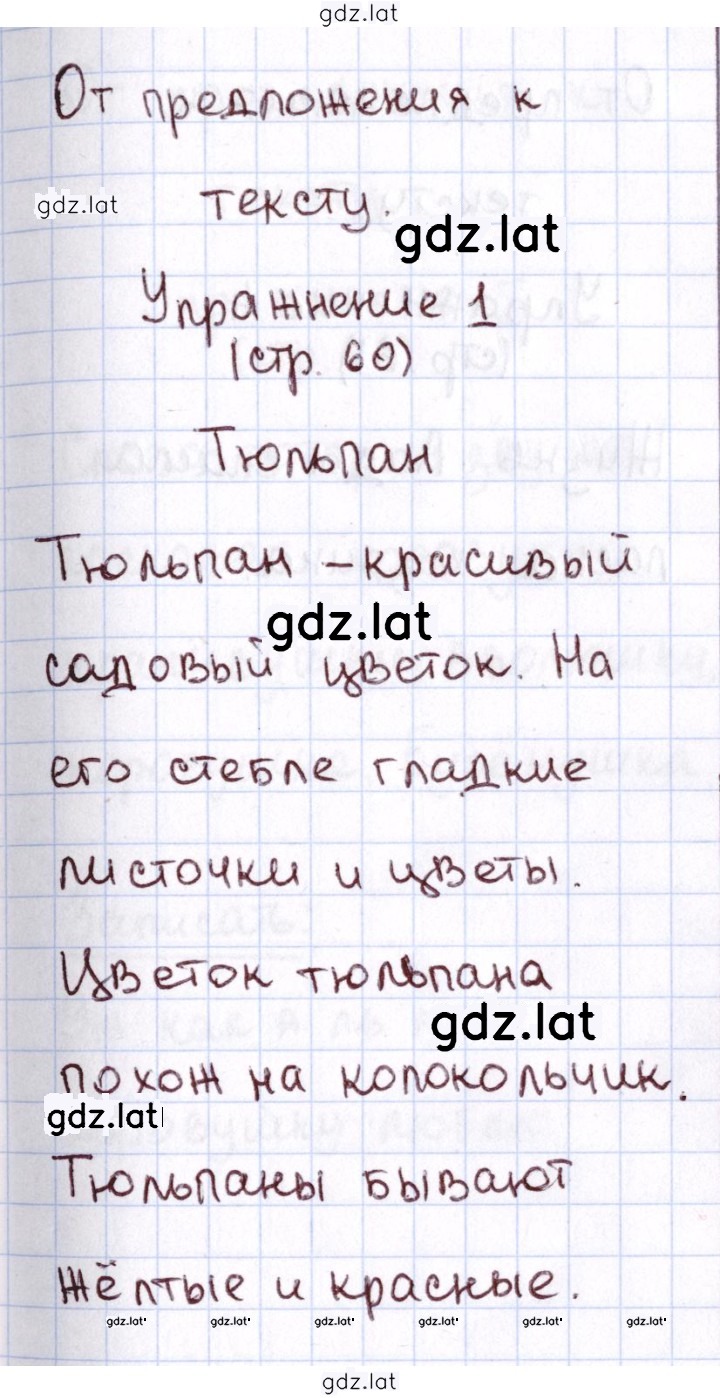 gdz.lat
От предложения к
gdz.lat
тексту.
gdz.lat
Упражнение 1
(стр. 60)
Тюльпан
Тюльпан – красивый
gdz.lat
садовый цветок. На
его стебле гладкие
листочки и цветы.
Цветок тюльпана
gdz.lat
похож на колокольчик.
gdz.lat
Тюльпаны бывают
жёлтые и красные.
gdz.lat gdz.lat gdz.lat gdz.lat gdz.lat gdz.lat
gdz.lat